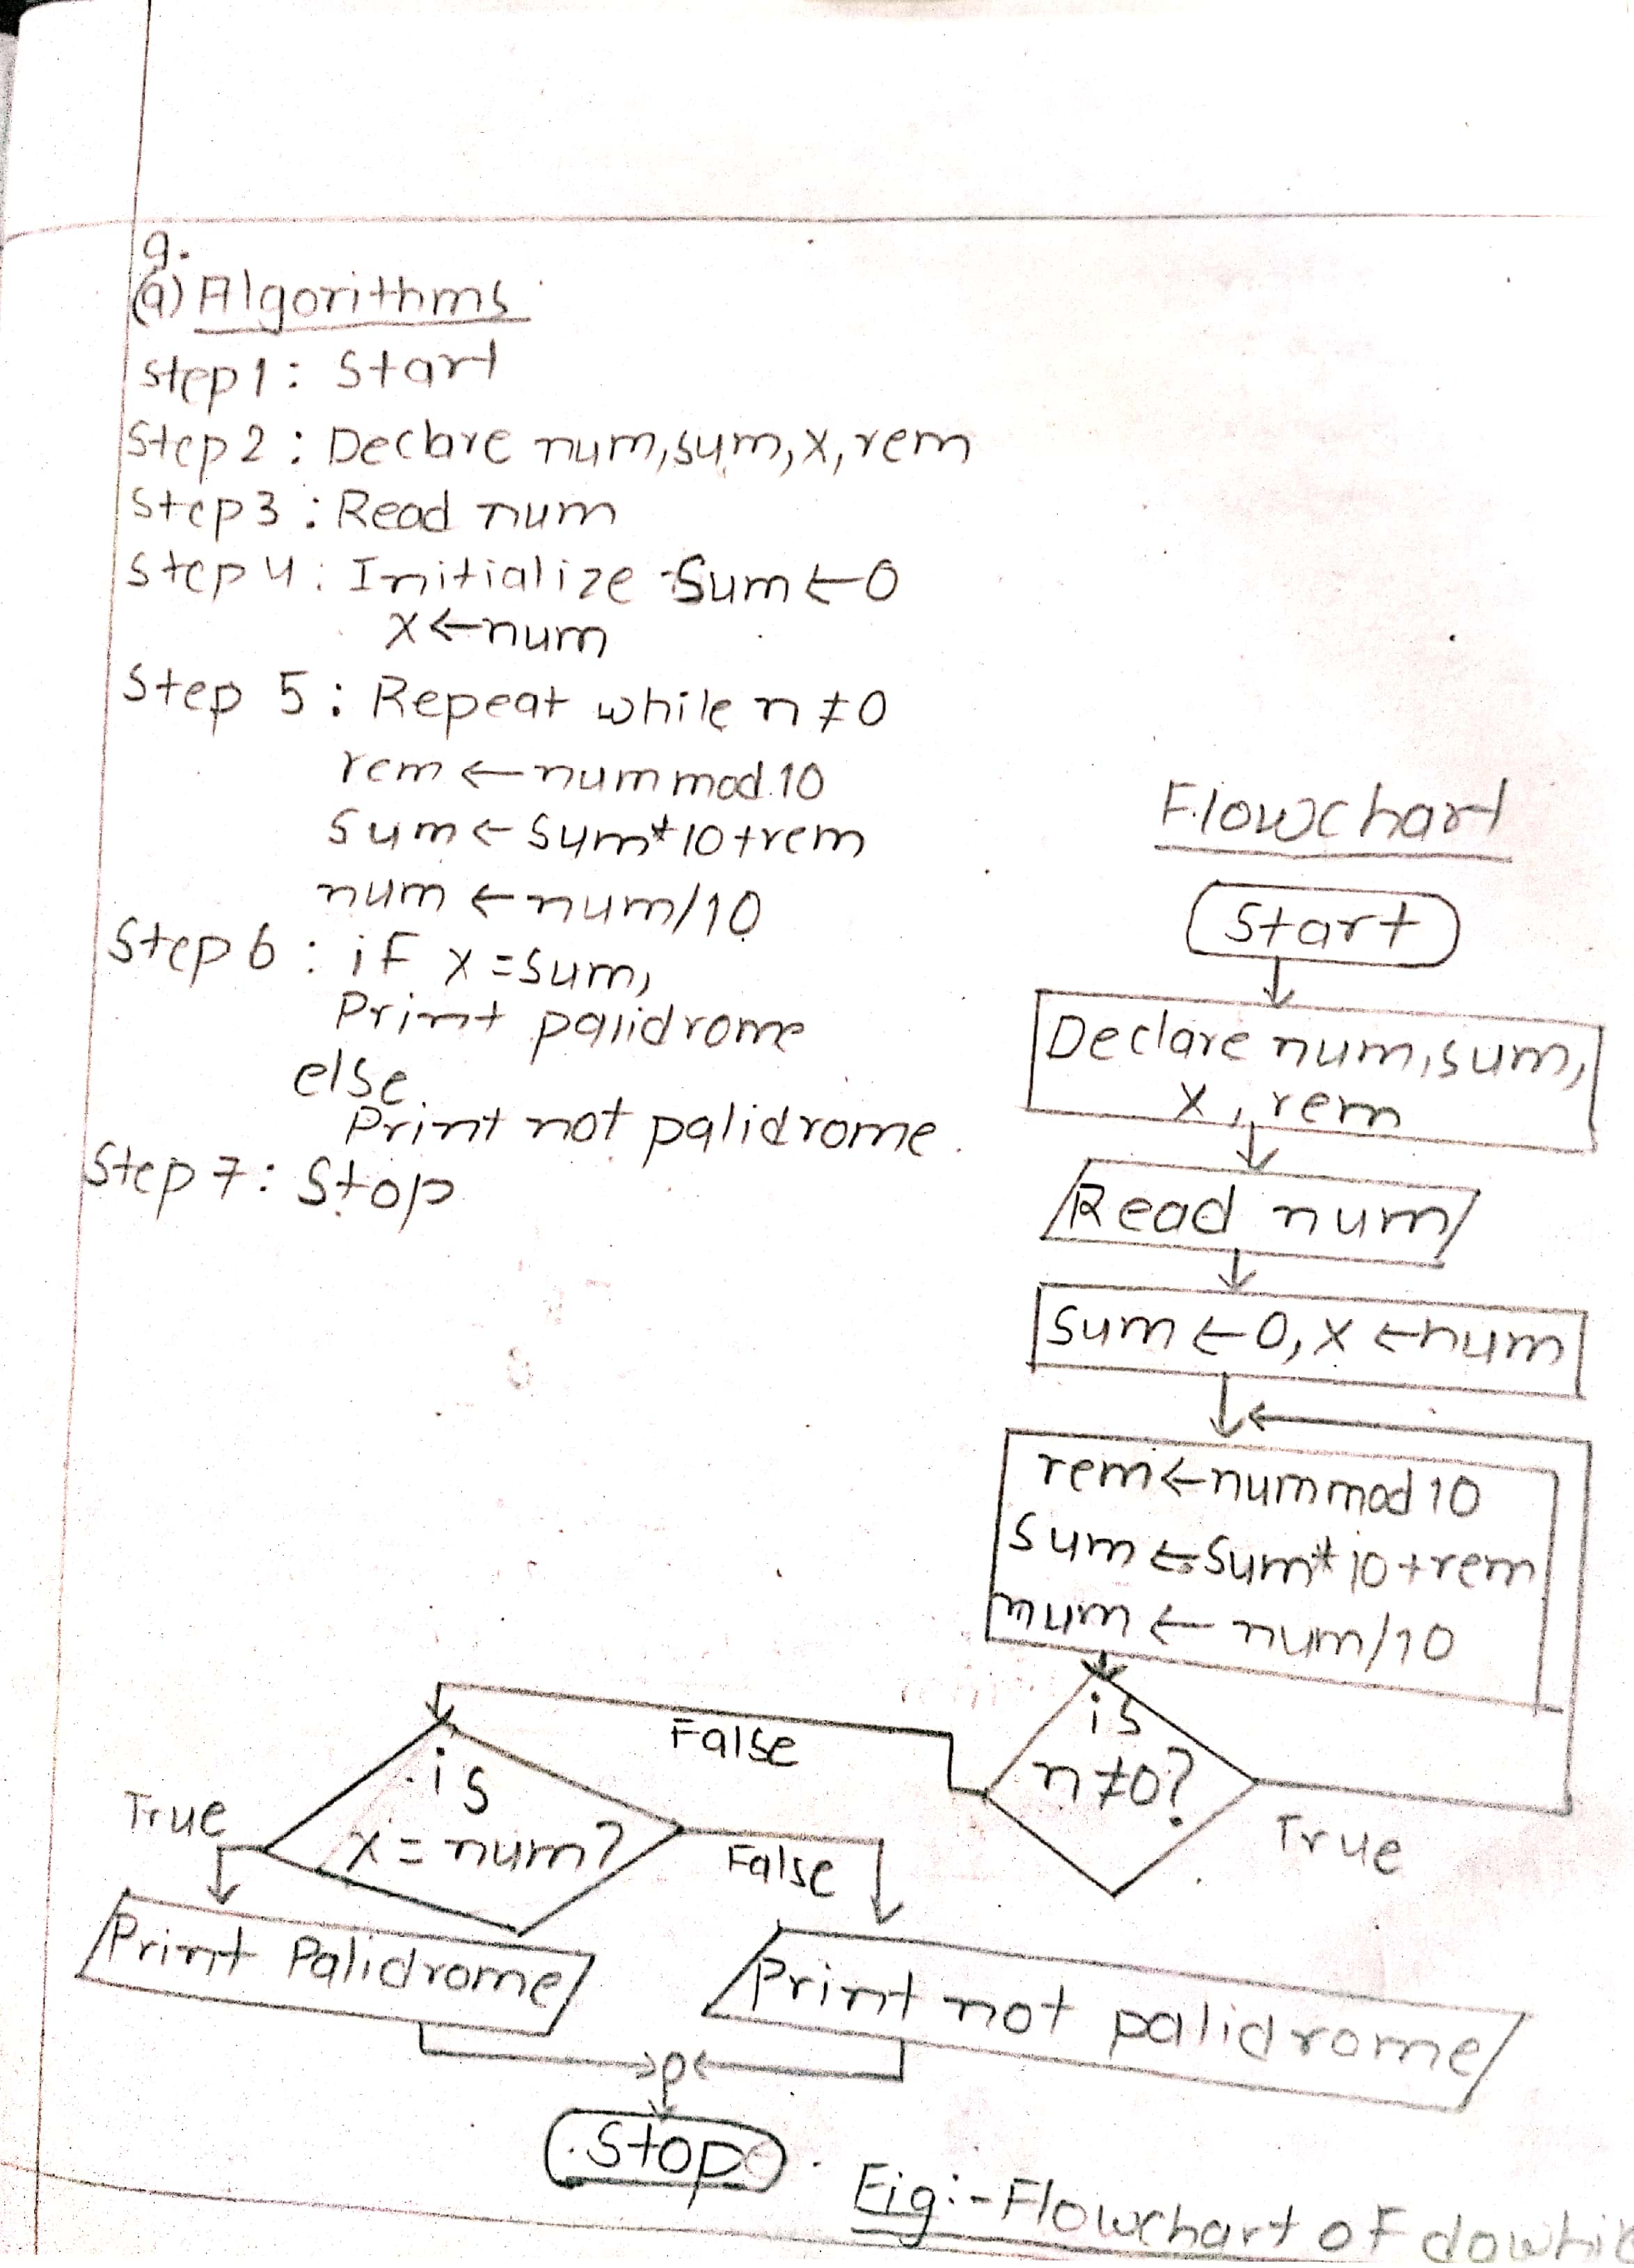 9.
(a) Algorithms
Step 1: Start
Step 2: Declare num, sum, x, rem
Step 3: Read num
Step 4: Initialize Sum ← 0
x ← num
Step 5: Repeat while n ≠ 0
rem ← num mod 10
Sum ← Sum * 10 + rem
num ← num/10
Step 6: if x = sum,
Print palidrome
else
Print not palidrome.
Step 7: Stop
Flowchart
Start
Declare num, sum,
x, rem
Read num
Sum ← 0, x ← num
rem ← num mod 10
Sum ← Sum * 10 + rem
num ← num/10
is
n ≠ 0?
True
False
is
x = num?
True
False
Print Palidrome
Print not palidrome
Stop
Fig:- Flowchart of